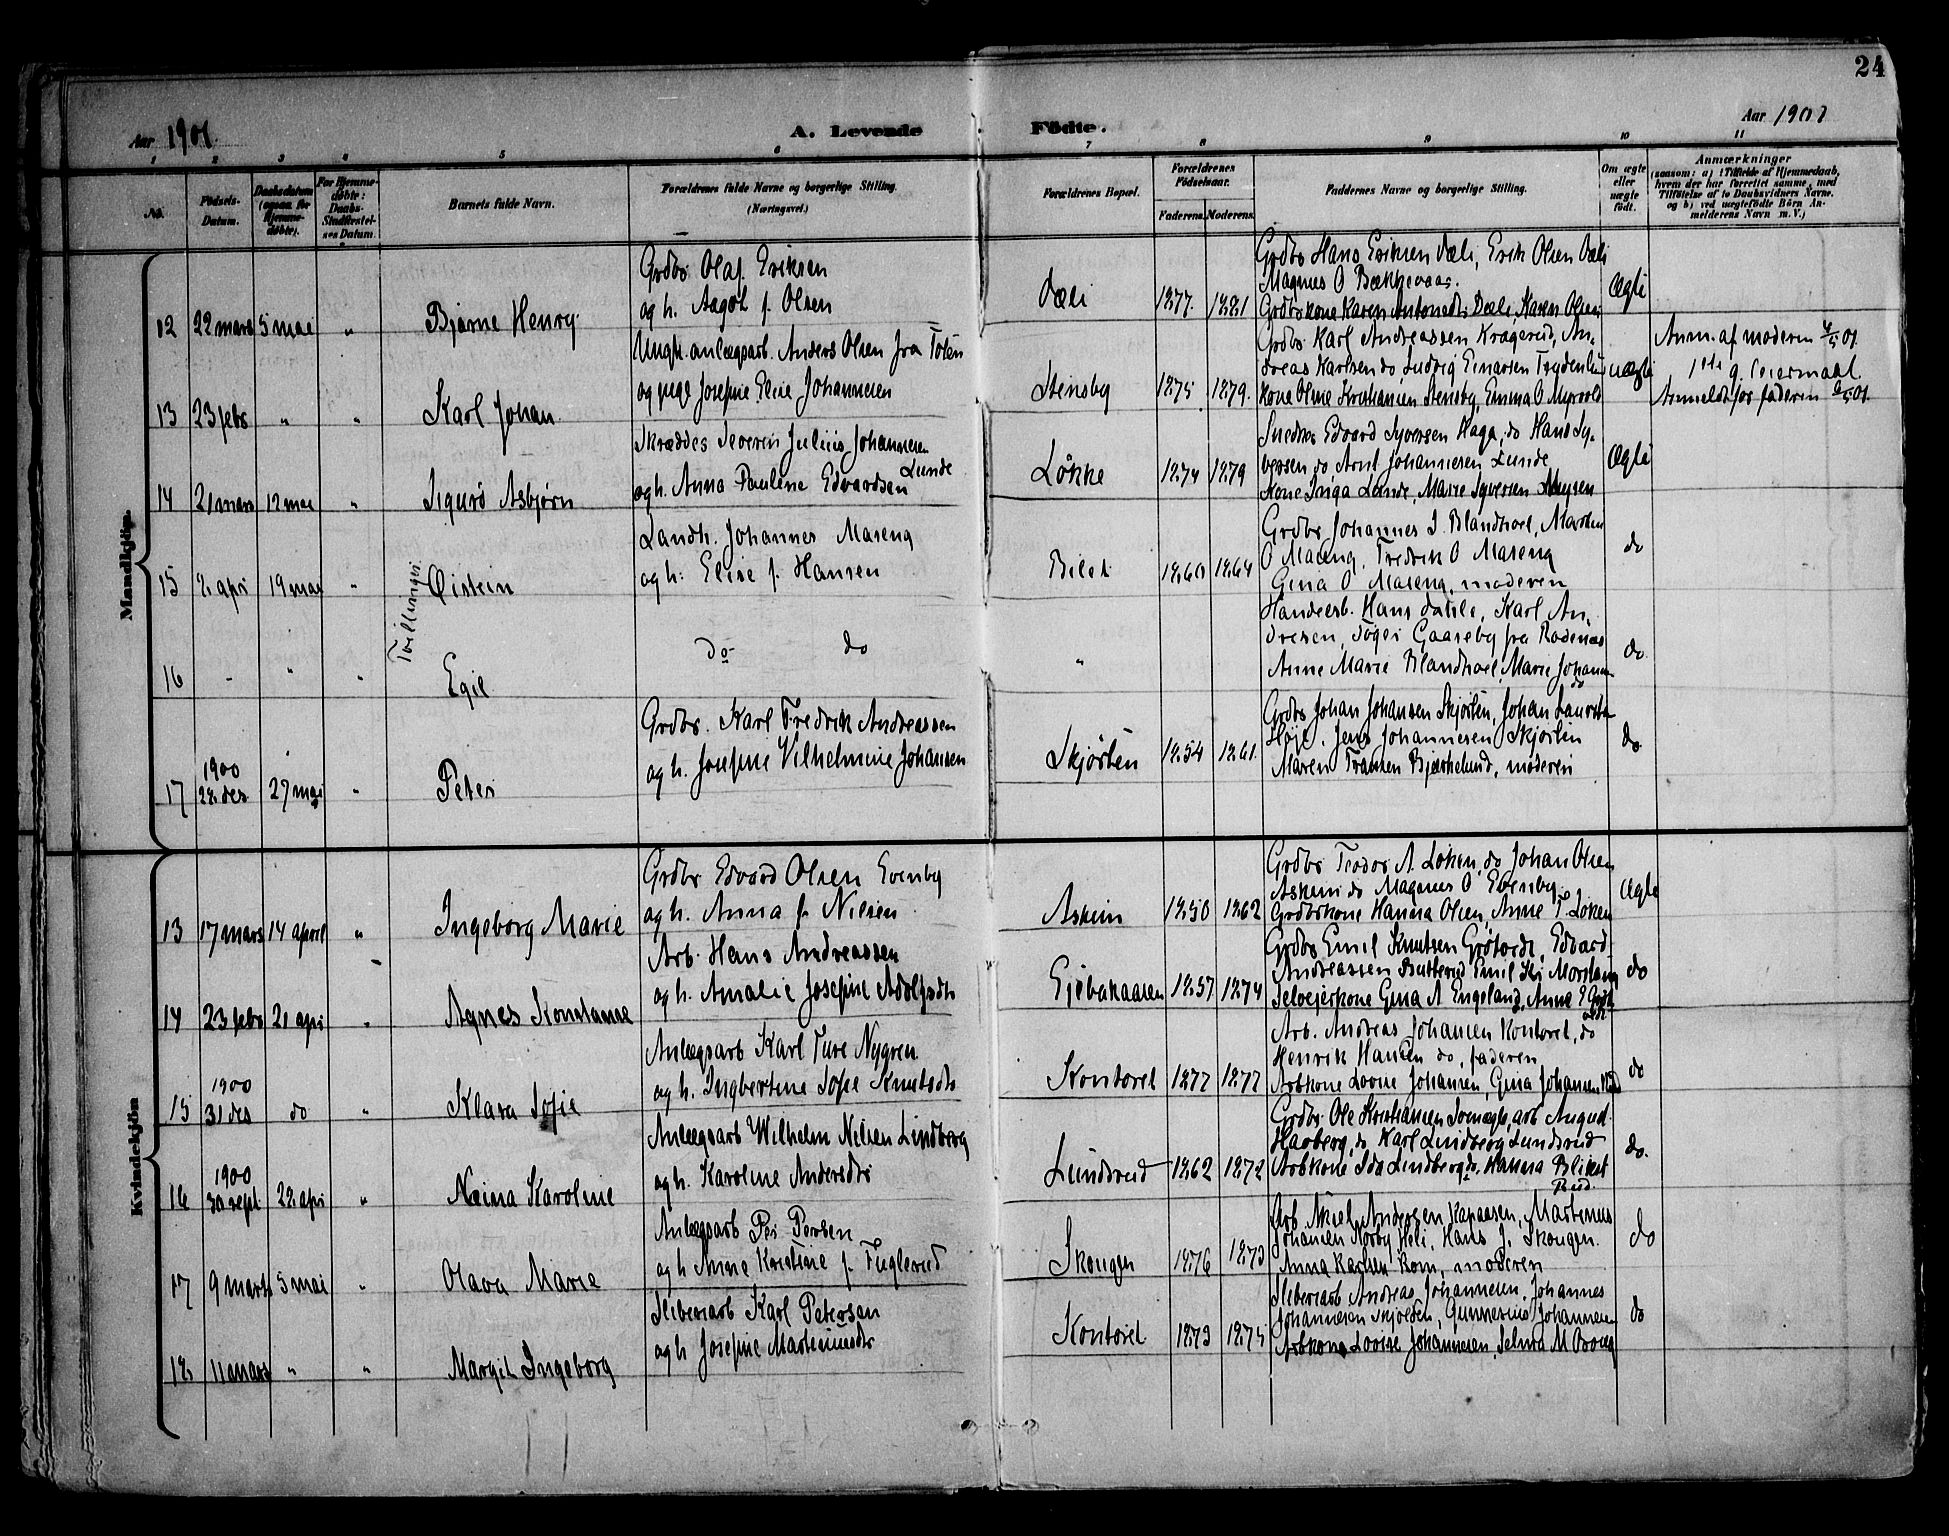 24
Aar 1901.
A. Levende
Fødte.
Aar 1901
1 2 3 4 5 6 7 8 9 10 11
No.
Fødsels-
Datum.
Daabsdatum
(ogsaa for
Hjemme-
døbte).
For Hjemme-
døbte:
Daabs-
Stadfæstel-
ses Datum.
Barnets fulde Navn.
Forældrenes fulde Navne og borgerlige Stilling.
(Næringsvei.)
Forældrenes Bopæl.
Forældrenes
Fødselsaar.
Faderens. Moderens.
Faddernes Navne og borgerlige Stilling.
Om ægte
eller
uægte
født.
Anmærkninger
(saasom: a) i Tilfælde af Hjemmedaab,
hvem der har forrettet samme, med
Tilføielse af to Daabsvidners Navne.
og b) ved uægtefødte Børn An-
melderens Navn m. V.)
Mandkjøn.
12 22 mars 5 mai " Bjarne Henry.
Grdbr Olaf Eriksen
og h. Aagot f. Olsen
Dæli 1877. 1881
Grdbr Hans Eriksen Dæli, Erik Olsen Dæli
Magnus O Bækkevaar.
Grdbrkone Karen Antonsdtr Dæli Karen Olsen
Ægte
13 23 febr " " Karl Johan
Ungk. anlægsarb. Anders Olsen fra Toten
og pige Josefine Elise Johannesen
Stensby 1875 1879.
Grdbr Karl Andreassen Kragerud, An-
dreas Karlsen do, Ludvig Einarsen
kone Oline Kristiansen Stensby, Emma O Myrvold
uægte
Anm. af moderen 4/5 01.
1ste g. leiermaal
Anmeldt for faderen 6/5 01.
14 21 mars 12 mai " Sigurd Asbjørn
Skrædder Severin Julius Johannesen
Lunde
og h. Anna Pauline Edvardsen
Løkke 1874 1879
Snedker Edvard Syversen Haga, do Hans Sy-
versen do Arnt Johannesen Lunde
Kone Inga Lunde, Marie Syversen
Ægte
Tvillinger
15 2 apr 19 mai " Øistein
Landh. Johannes Maseng
og h: Elise f. Hansen
Bilet 1860 1864
Grdbr Johannes J. Blandhoel, Marten
O Maseng, Fredrik O Maseng
Gina O Maseng, moderen
do
16 - " " Egil
do do
"
Handelsb. Hans Dahle, Karl An-
dresen, Tøger Gaaseby fra Rødenæs
Anne Marie Blandhoel, Marie Johansen
do
do.
17 1900
28 des 27 mai " Peter
Grdbr. Karl Fredrik Andreassen
og h. Josefine Vilhelmine Johansen
Skjørten 1854 1861.
Grdbr Johan Johansen Skjørten, Johan
Høje, Jens Johannesen Skjørten
Maren Fransen Bjærkelund, moderen
do
Kvindekjøn
13 17 mars 14 april " Ingeborg Marie
Grdbr Edvard Olsen Evenby
og h. Anna f. Nilsen
Askim 1850 1862
Grdbr Teodor A. Løken, do Johan Olsen
Askim do Magnus O Evenby,
Grdbrkone Hanna Olsen, Anne T Løken
Ægte
14 23 febr 21 apr " Agnes Konstanse
Arb. Hans Andreassen
og h. Amalie Josefine Adolfsdtr
1857 1874
Grdbr Emil Knutsen Grøtvedt, Edvard
Andreassen Butterud Emil
Selveierkone Gina A Engeland, Anne E Grøt
vedt
do
15 1900
31 des do " Klara Sofie
Anlægsarb Karl Ture Nygren
og h. Ingbertine Sofie Knutsdtr
Kontoret 1877 1877
Arb. Andreas Johansen Kontoret, do
Henrik Hansen do, faderen
Arbkone Lovise Johansen, Gina Johansen
do
16 1900
30 sept. 28 apr " Naima Karoline
Anlægsarb Wilhelm Nilsen Lindborg
og h. Karoline Andersdtr
Lundsrud 1862 1872
Grdbr. Ole Kristiansen arb August
Haaberg, do Karl Lindberg Lundsrud
Arbkone Ida Lindberg do, Hanna
Rud.
do.
17 9 mars 5 mai " Olava Marie
Anlægsarb Per Persen
og h Anne Kristine f. Fuglerud
Skougen 1876 1873
Arb. Aksel Andersen Kapaasen, Martinus
Johansen Norby Heli, Hans J. Skougen.
Anna Karlsen Rom, moderen
do
18 11 mars " " Margit Ingeborg
Sliberiarb Karl Petersen
og h Josefine Martinusdtr
Kontoret 1873 1875
Sliberiarb Andreas Johannesen, Johannes
Johannesen Skjolden, Gunnerius Johannesen
Arbkone Lovise Johannesen, Selma M
do